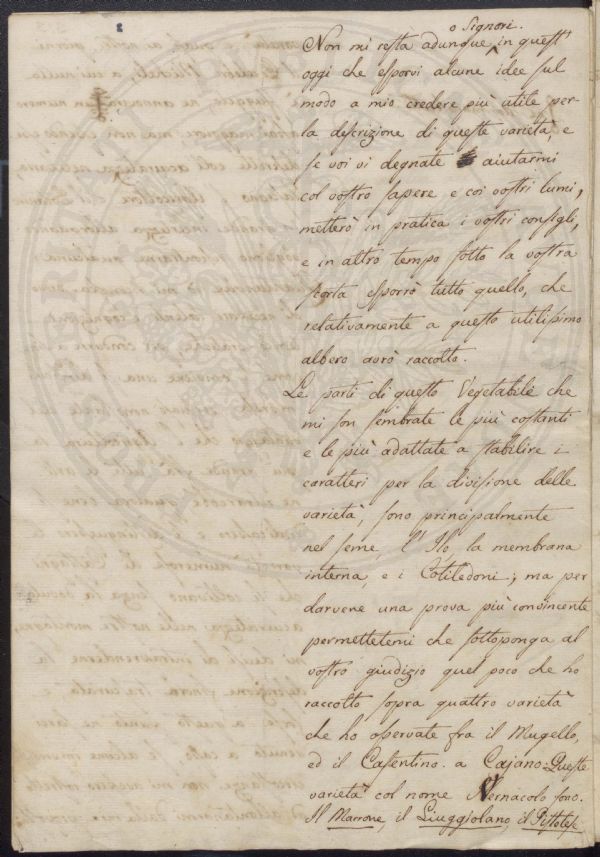 o Signori.
Non mi resta adunque in quest'
oggi che esporvi alcune idee sul
modo a mio credere più utile per
la descrizione di queste varietà, e
se voi vi degnate aiutarmi
col vostro sapere e coi vostri lumi,
metterò in pratica i vostri consigli,
e in altro tempo sotto la vostra
scorta esporrò tutto quello, che
relativamente a questo utilissimo
albero avrò raccolto.
Le parti di questo Vegetabile che
mi son sembrate le più costanti
e le più adattate a stabilire i
caratteri per la divisione delle
varietà, sono principalmente
nel seme, l'Ilo, la membrana
interna, e i Cotiledoni; ma per
darvene una prova più convincente
permettetemi che sottoponga al
vostro giudizio quel poco che ho
raccolto sopra quattro varietà
che ho osservate fra il Mugello,
ed il Casentino. a Cajano: Queste
varietà col nome Vernacolo sono.
Il Marrone, il Liuggiolano, il Pistolese